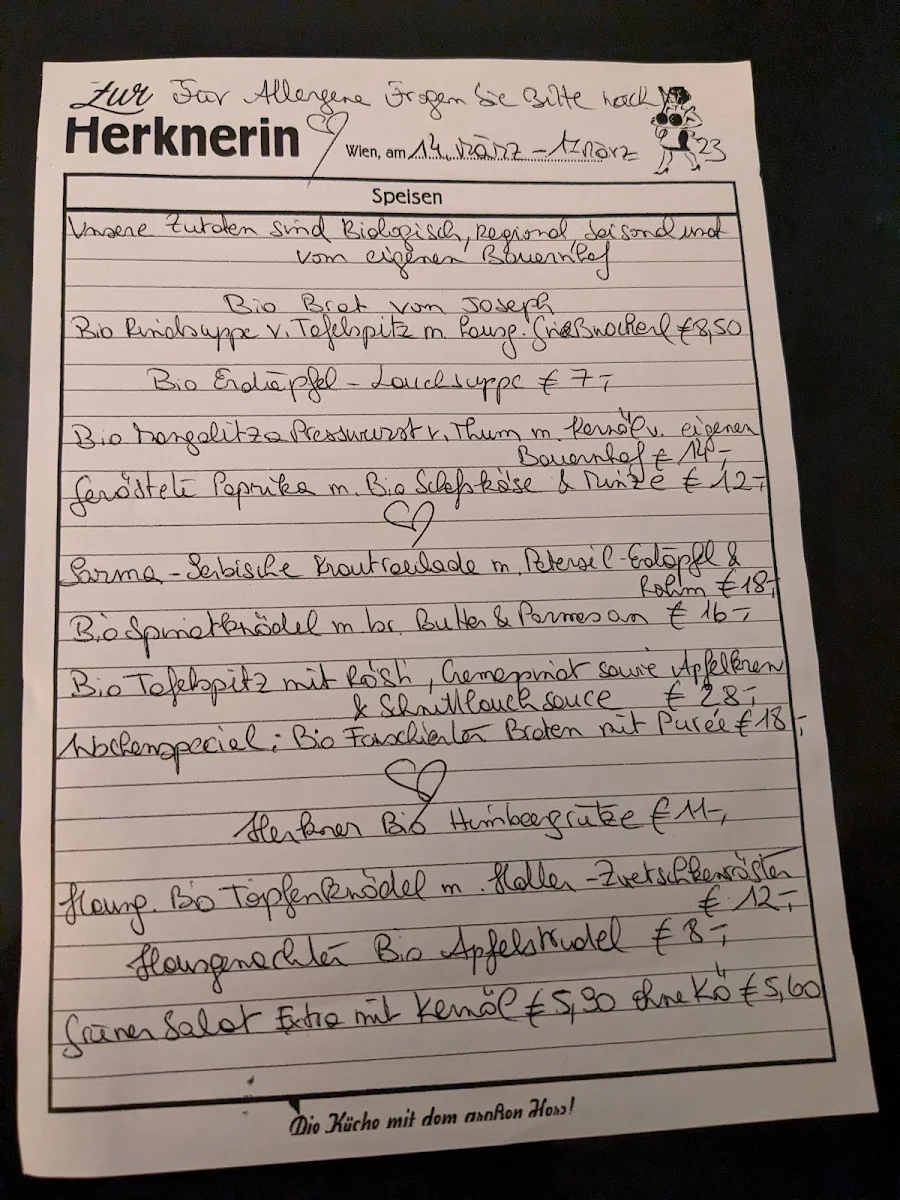 Zur Für Allergene Fragen Sie Bitte nach
Herknerin Wien, am 14. März - 17 März 23
Speisen
Unsere Zutaten sind Biologisch, regional Saisonal und
vom eigenen Bauernhof
Bio Brot von Joseph
Bio Rindsuppe v. Tafelspitz m. hausg. Grießnockerl € 8,50
Bio Erdäpfel - Lauchsuppe € 7,-
Bio Mangalitza Presswurst v. Thum m. Kernöl v. eigenen
Bauernhof € 14,-
Geröstete Paprika m. Bio Schafskäse & Minze € 12,-
Sarma - Serbische Krautroulade m. Petersil-Erdäpfl &
Rahm € 18,-
Bio Spinatknödel m. br. Butter & Parmesan € 16,-
Bio Tafelspitz mit Rösti, Cremespinat sowie Apfelkren
& Schnittlauchsauce € 28,-
Wochenspecial: Bio Faschierten Braten mit Purée € 18,-
Herkner Bio Himbeergrütze € 11,-
Hausg. Bio Topfenknödel m. Haller - Zwetschkenröster
€ 12,-
Hausgemachter Bio Apfelstrudel € 8,-
Grüner Salat Extra mit Kernöl € 5,90 ohne Kö € 5,60
Die Küche mit dem großen Herz!